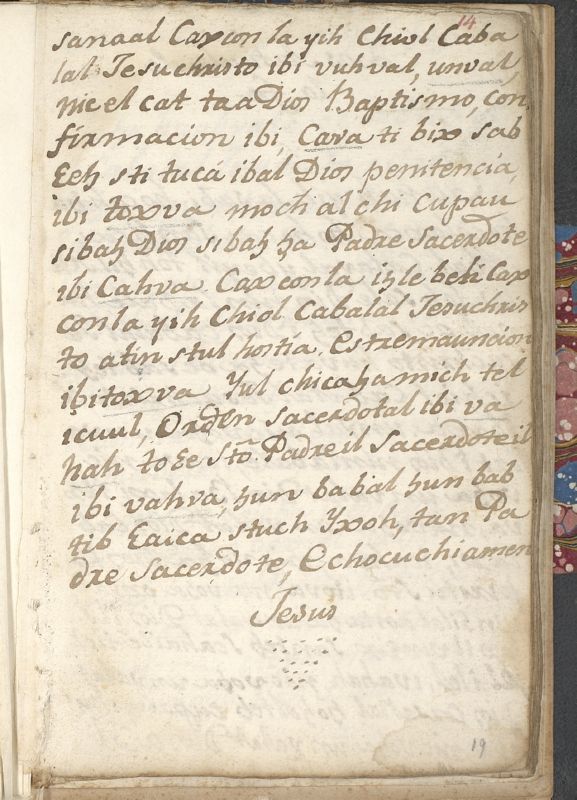 14
sanaal Caxcon la yih Chiol Caba
lal Jesuchristo ibi vuhval, unval,
nicel cat taa Dios Baptismo, con,
firmacion ibi, Cava ti bix sab
Eeh sti tucá ibal Dios penitencia,
ibi toxva moch al chi Cupau
sibaꜧ Dios sibaꜧ ꜧa Padre Sacerdote
ibi Cahva Caxconla iꜧle beh Cax
conla yih Chiol Cabalal Jesuchris
to atin stul hostia. Estremauncion
ibitoxva Yul chicaꜧamich tel
icuul, Orden Sacerdotal ibi va
hah to Ee Stõ. Padreil Sacerdoteil
ibi vahva, ꜧun babal ꜧun bab
tib Eaica stuch Yxoh, tan Pa
dre Sacerdote, Echocuchiamen
Jesus
19